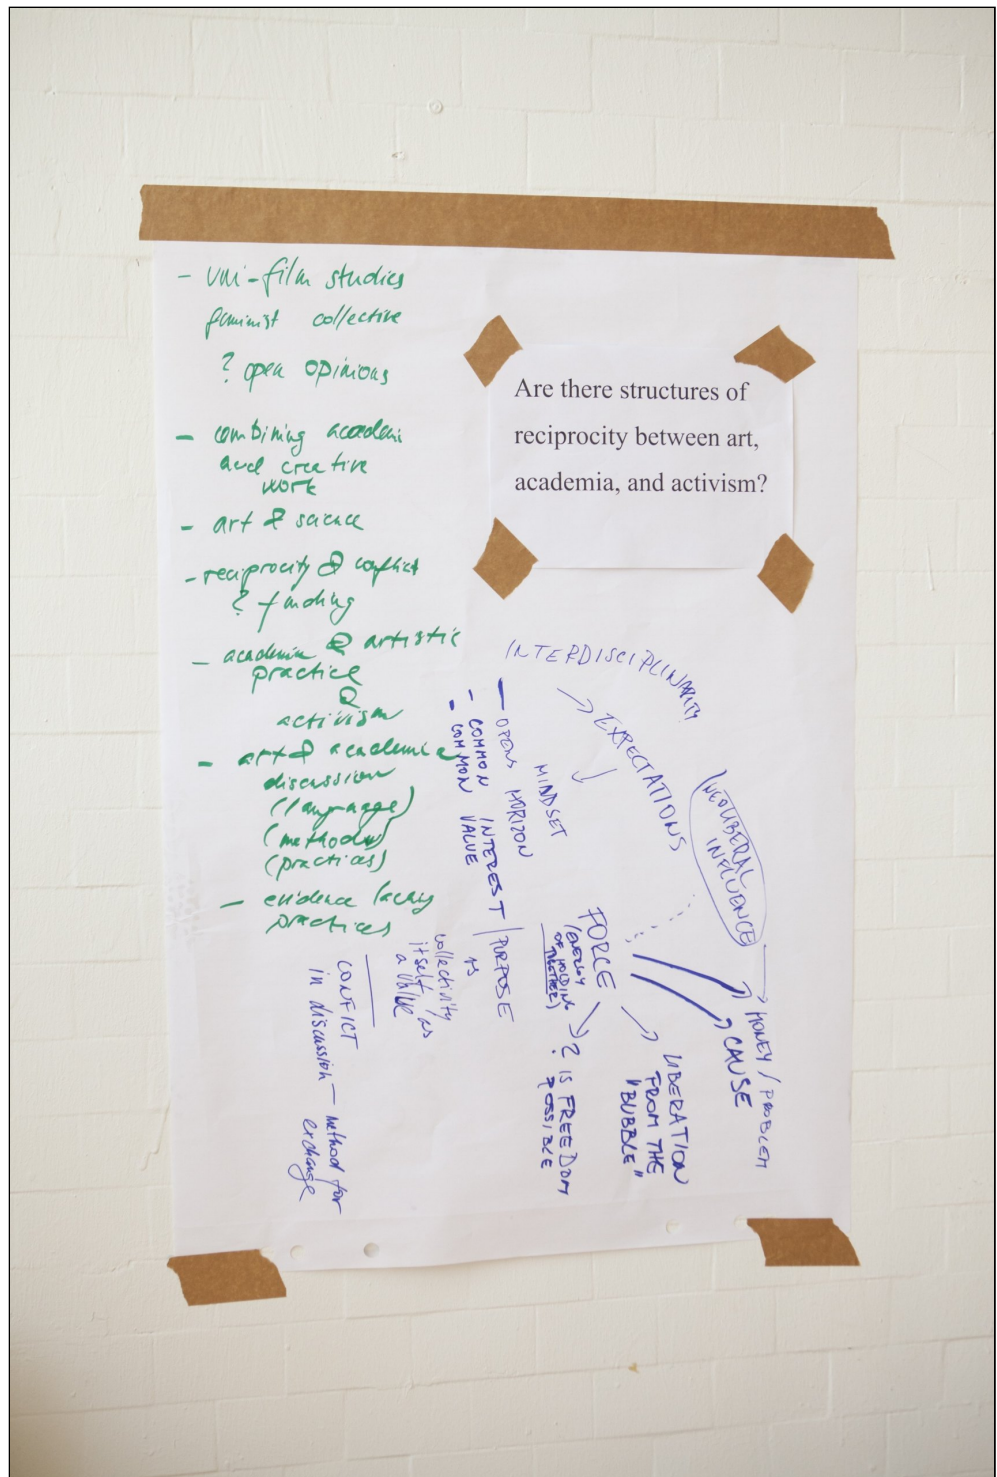 - uni-film studies
feminist collective
? open opinions
- combining academic
and creative
work
- art & science
- reciprocity & conflict
? funding
- academia & artistic
practice
&
activism
- art & academia
discussion
(language)
(methods)
(practices)
- evidence
practices
Are there structures of
reciprocity between art,
academia, and activism?
INTERDISCIPLINARITY
→ EXPECTATIONS
- OPENS HORIZON
MINDSET
- COMMON INTEREST / PURPOSE
- COMMON VALUE
as
collectivity
itself as
a value
CONFICT
in discussion – method for
exchange
NEOLIBERAL
INFLUENCE
→ MONEY / PROBLEM
→ CAUSE
FORCE
(ENERGY
OF HOLDING
TOGETHER)
→ LIBERATION
FROM THE
"BUBBLE"
→ ? IS FREEDOM
POSSIBLE